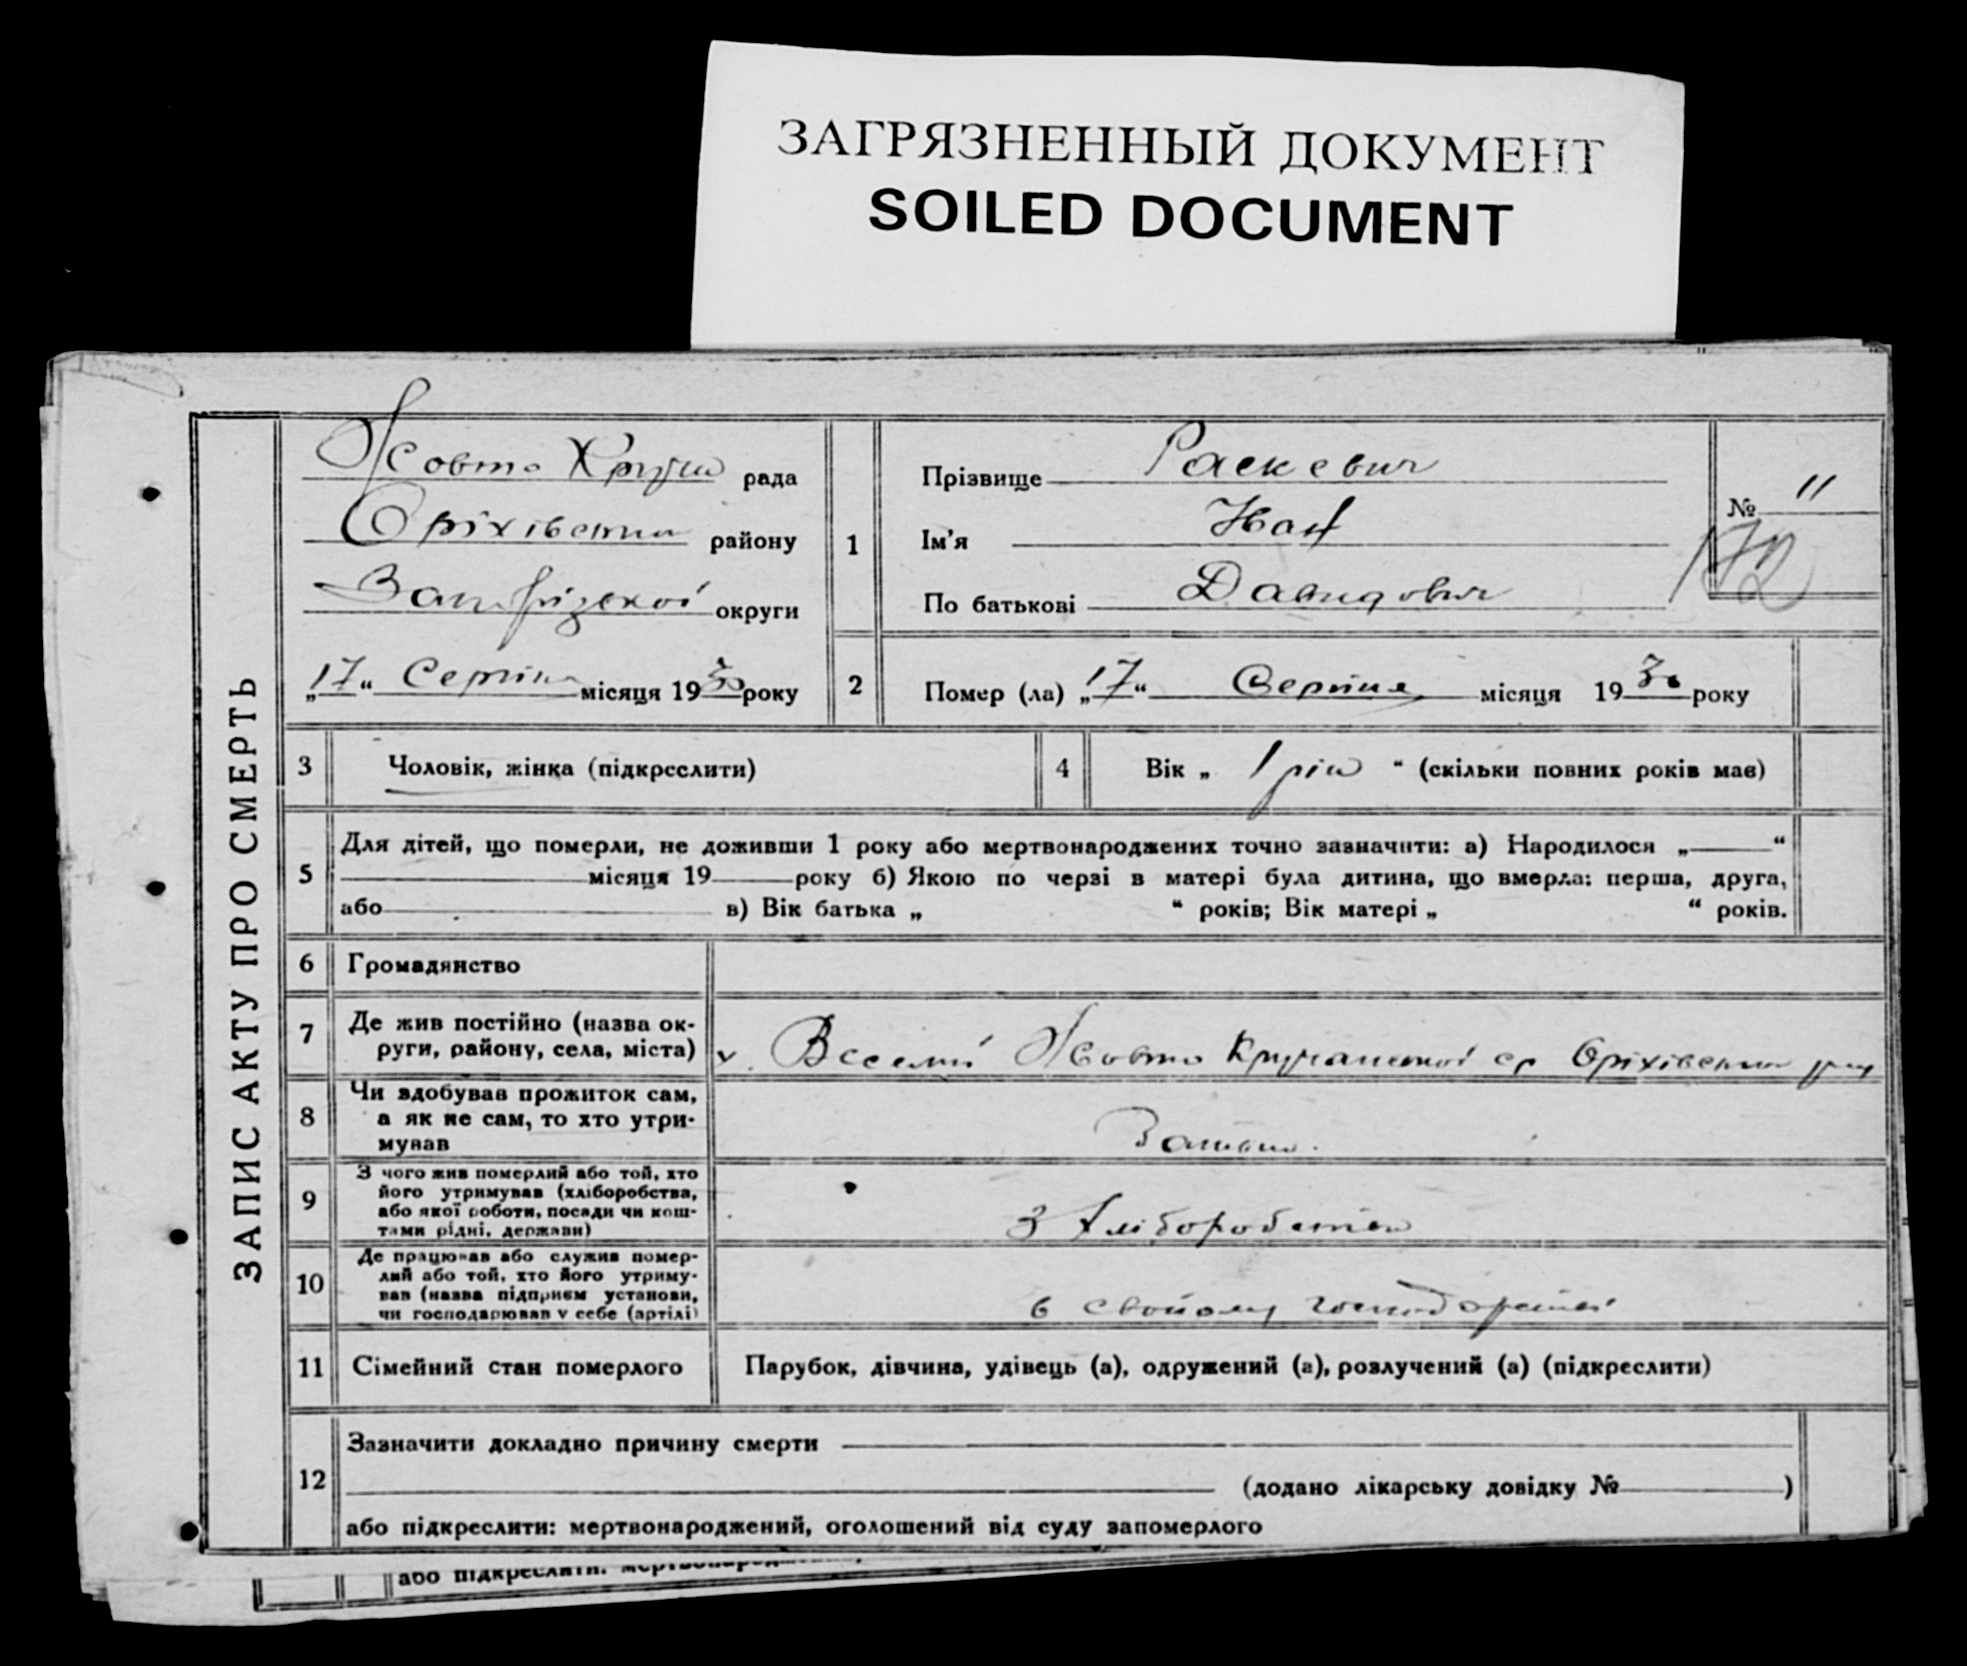 ЗАГРЯЗНЕННЫЙ ДОКУМЕНТ
SOILED DOCUMENT
ЗАПИС АКТУ ПРО СМЕРТЬ
Жовто Кручи рада
Оріхівськи району
Запорізської округи
„17“ Серпня місяця 1930 року
1
Прізвище Раскевич
Ім'я Иван
По батькові Давидович
№ 11
172
2 Помер (ла) „17“ Серпня місяця 1930 року
3 Чоловік, жінка (підкреслити)
4 Вік „ 1 рік “ (скільки повних років має)
5 Для дітей, що померли, не доживши 1 року або мертвонароджених точно зазначити: а) Народилося „ “
місяця 19 року б) Якою по черзі в матері була дитина, що вмерла: перша, друга,
або в) Вік батька „ “ років; Вік матері „ “ років.
6 Громадянство
7 Де жив постійно (назва ок-
руги, району, села, міста)
х. Веселий Жовто Кручанської ср Оріхівського
8 Чи здобував прожиток сам,
а як не сам, то хто утри-
мував
Батько.
9 З чого жив померлий або той, хто
його утримував (хліборобства,
або якої роботи, посади чи кош-
тами рідні, держави)
З хліборобства
10 Де працював або служив помер-
лий або той, хто його утриму-
вав (назва підприєм установи,
чи господарював у себе (артілі)
в свойому господарстві
11 Сімейний стан померлого
Парубок, дівчина, удівець (а), одружений (а), розлучений (а) (підкреслити)
12 Зазначити докладно причину смерти
(додано лікарську довідку № )
або підкреслити: мертвонароджений, оголошений від суду запомерлого
або підкреслити: